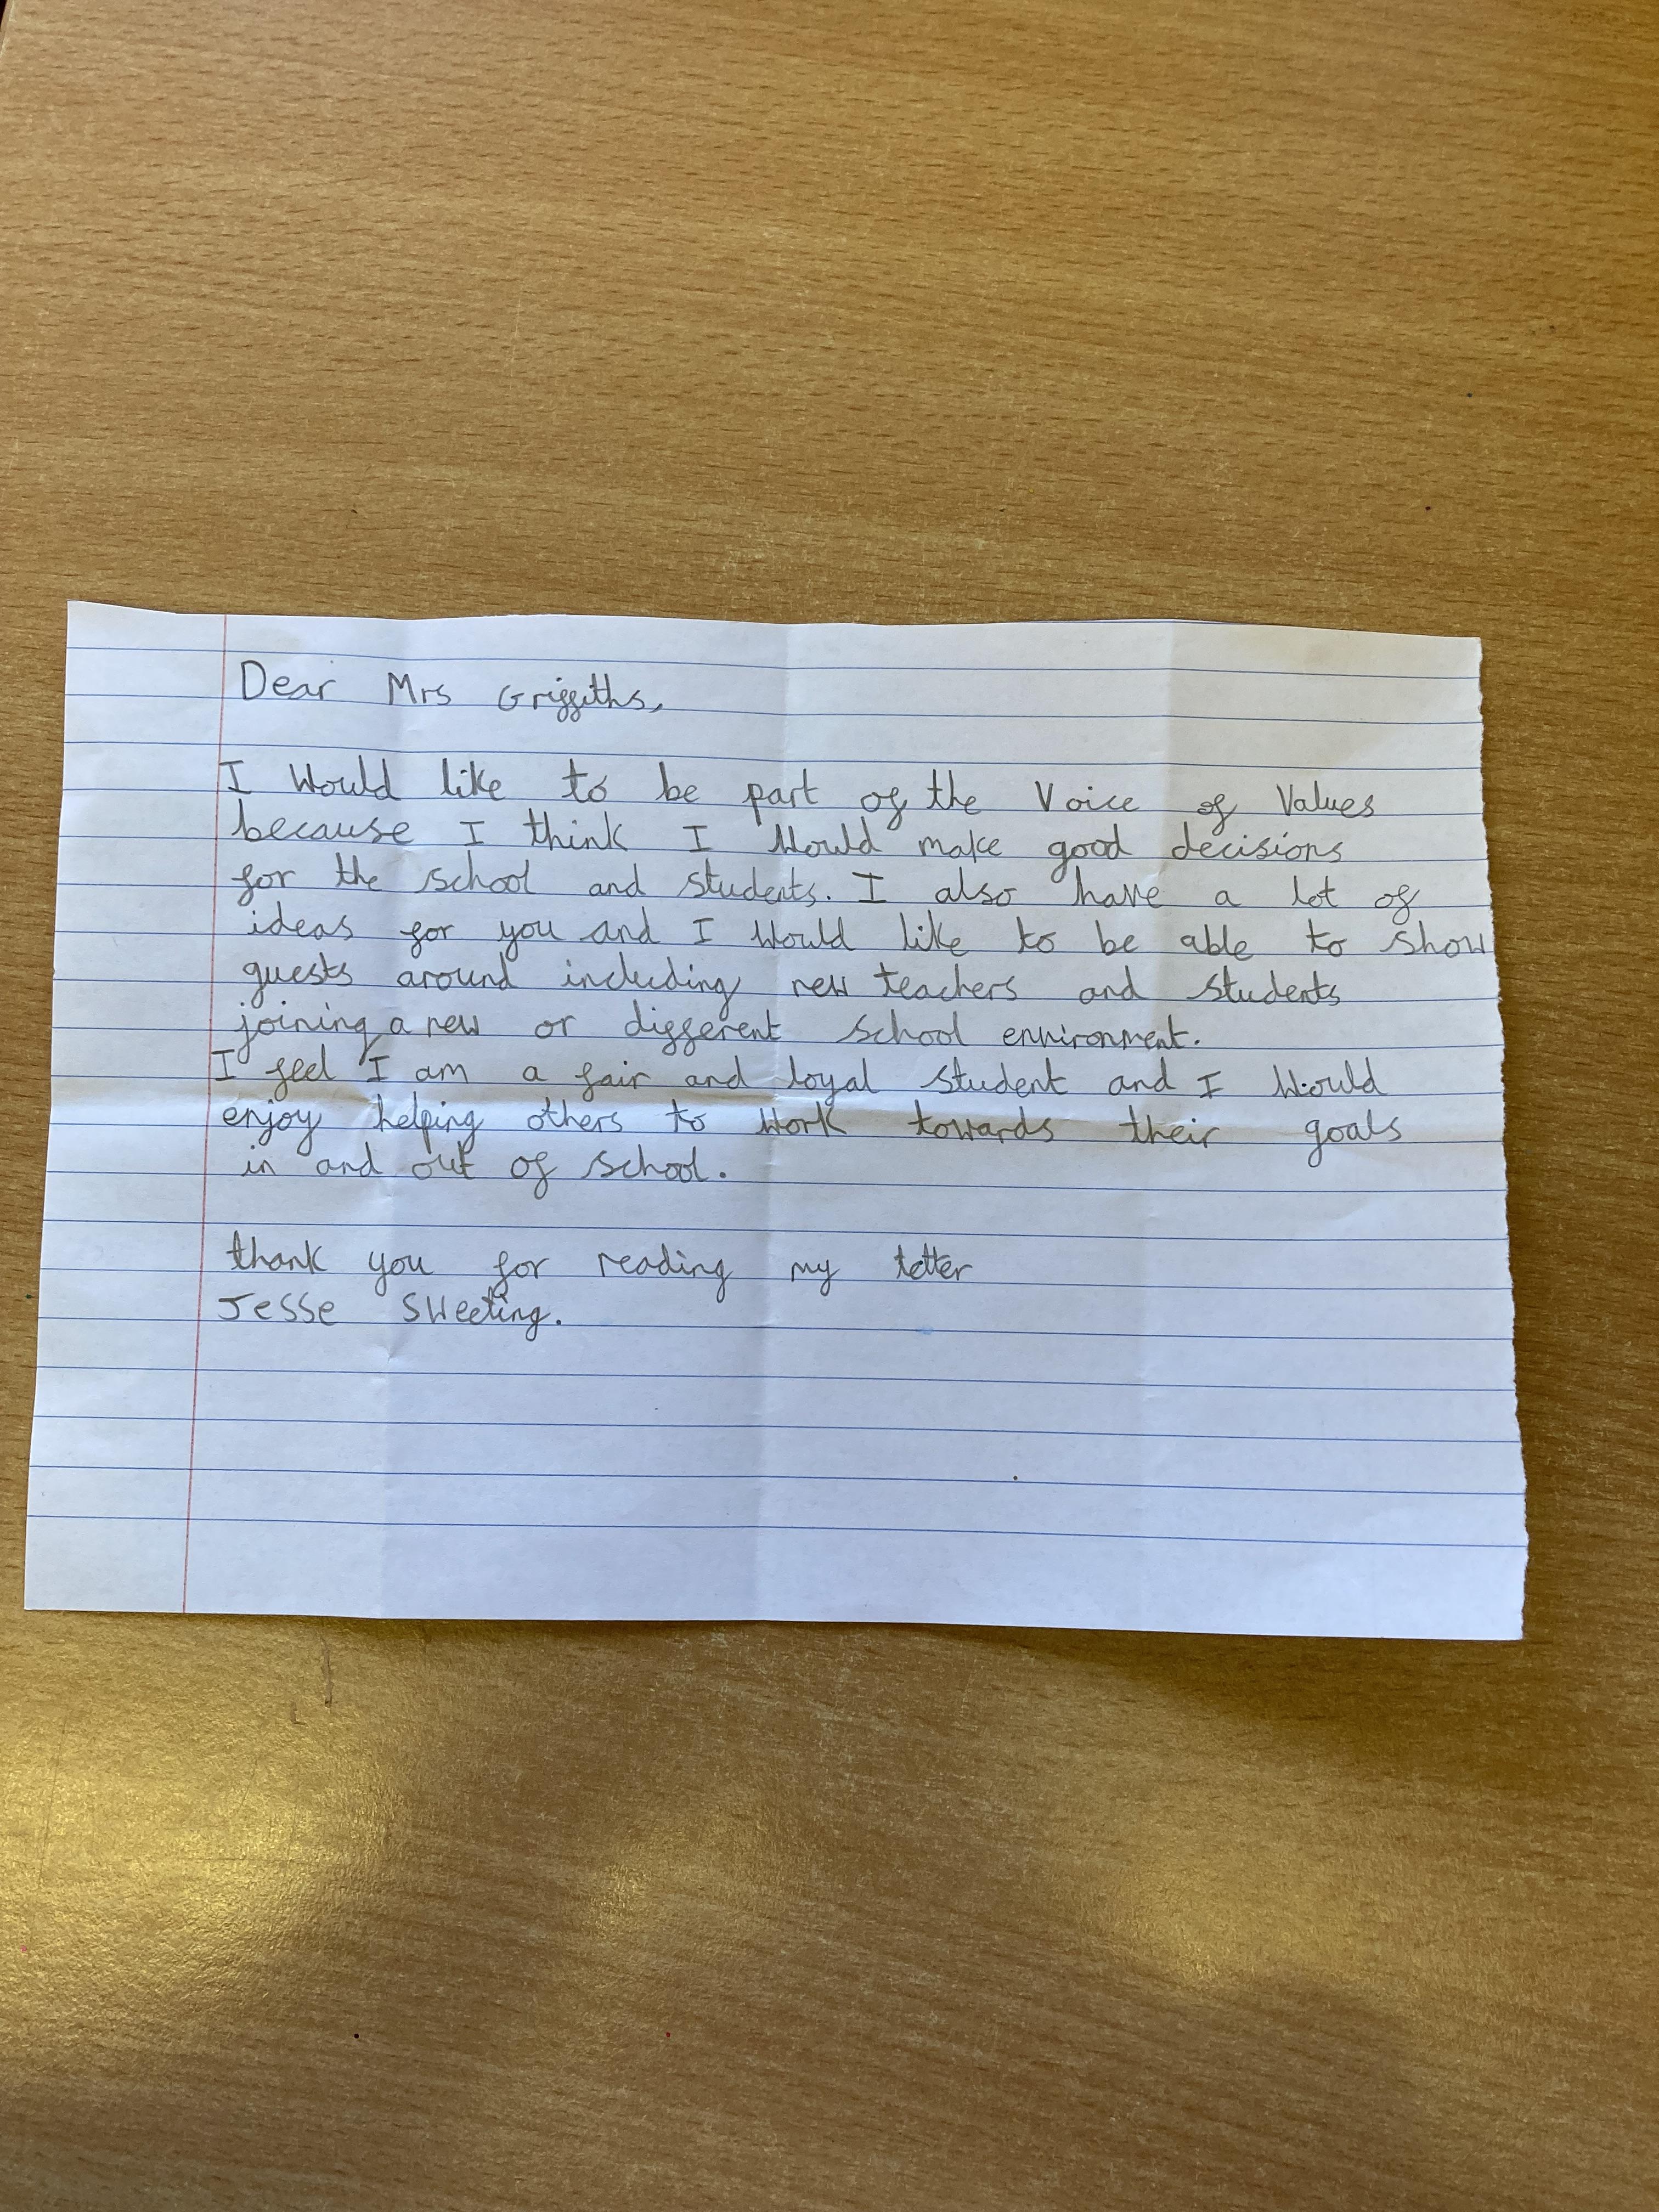 Dear Mrs Griffiths,
I would like to be part of the Voice of Values
because I think I would make good decisions
for the school and students. I also have a lot of
ideas for you and I would like to be able to show
guests around including new teachers and students
joining a new or different school environment.
I feel I am a fair and loyal student and I would
enjoy helping others to work towards their goals
in and out of school.
thank you for reading my letter
Jesse Sweeting.